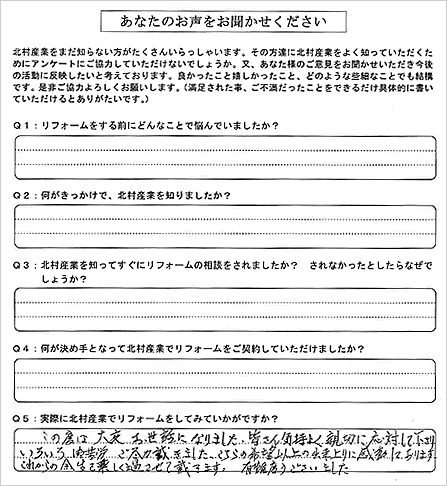 あなたのお声をお聞かせください
北村産業をまだ知らない方がたくさんいらっしゃいます。その方達に北村産業をよく知っていただくた
めにアンケートにご協力していただけないでしょうか。又、あなた様のご意見をお聞かせいただき今後
の活動に反映したいと考えております。良かったこと嬉しかったこと、どのような些細なことでも結構
です。是非ご協力よろしくお願いします。（満足された事、ご不満だったことをできるだけ具体的に書い
ていただけるとありがたいです。）
Ｑ１：リフォームをする前にどんなことで悩んでいましたか？
Ｑ２：何がきっかけで、北村産業を知りましたか？
Ｑ３：北村産業を知ってすぐにリフォームの相談をされましたか？　されなかったとしたらなぜで
しょうか？
Ｑ４：何が決め手となって北村産業でリフォームをご契約していただけましたか？
Ｑ５：実際に北村産業でリフォームをしてみていかがですか？
この度は大変お世話になりました。皆さん気持よく親切に応対して下さり
いろいろ ご尽力戴きました。こちらの希望以上の出来上りに感動しております
これからの余生を楽しく過させて戴きます。有難度うございました